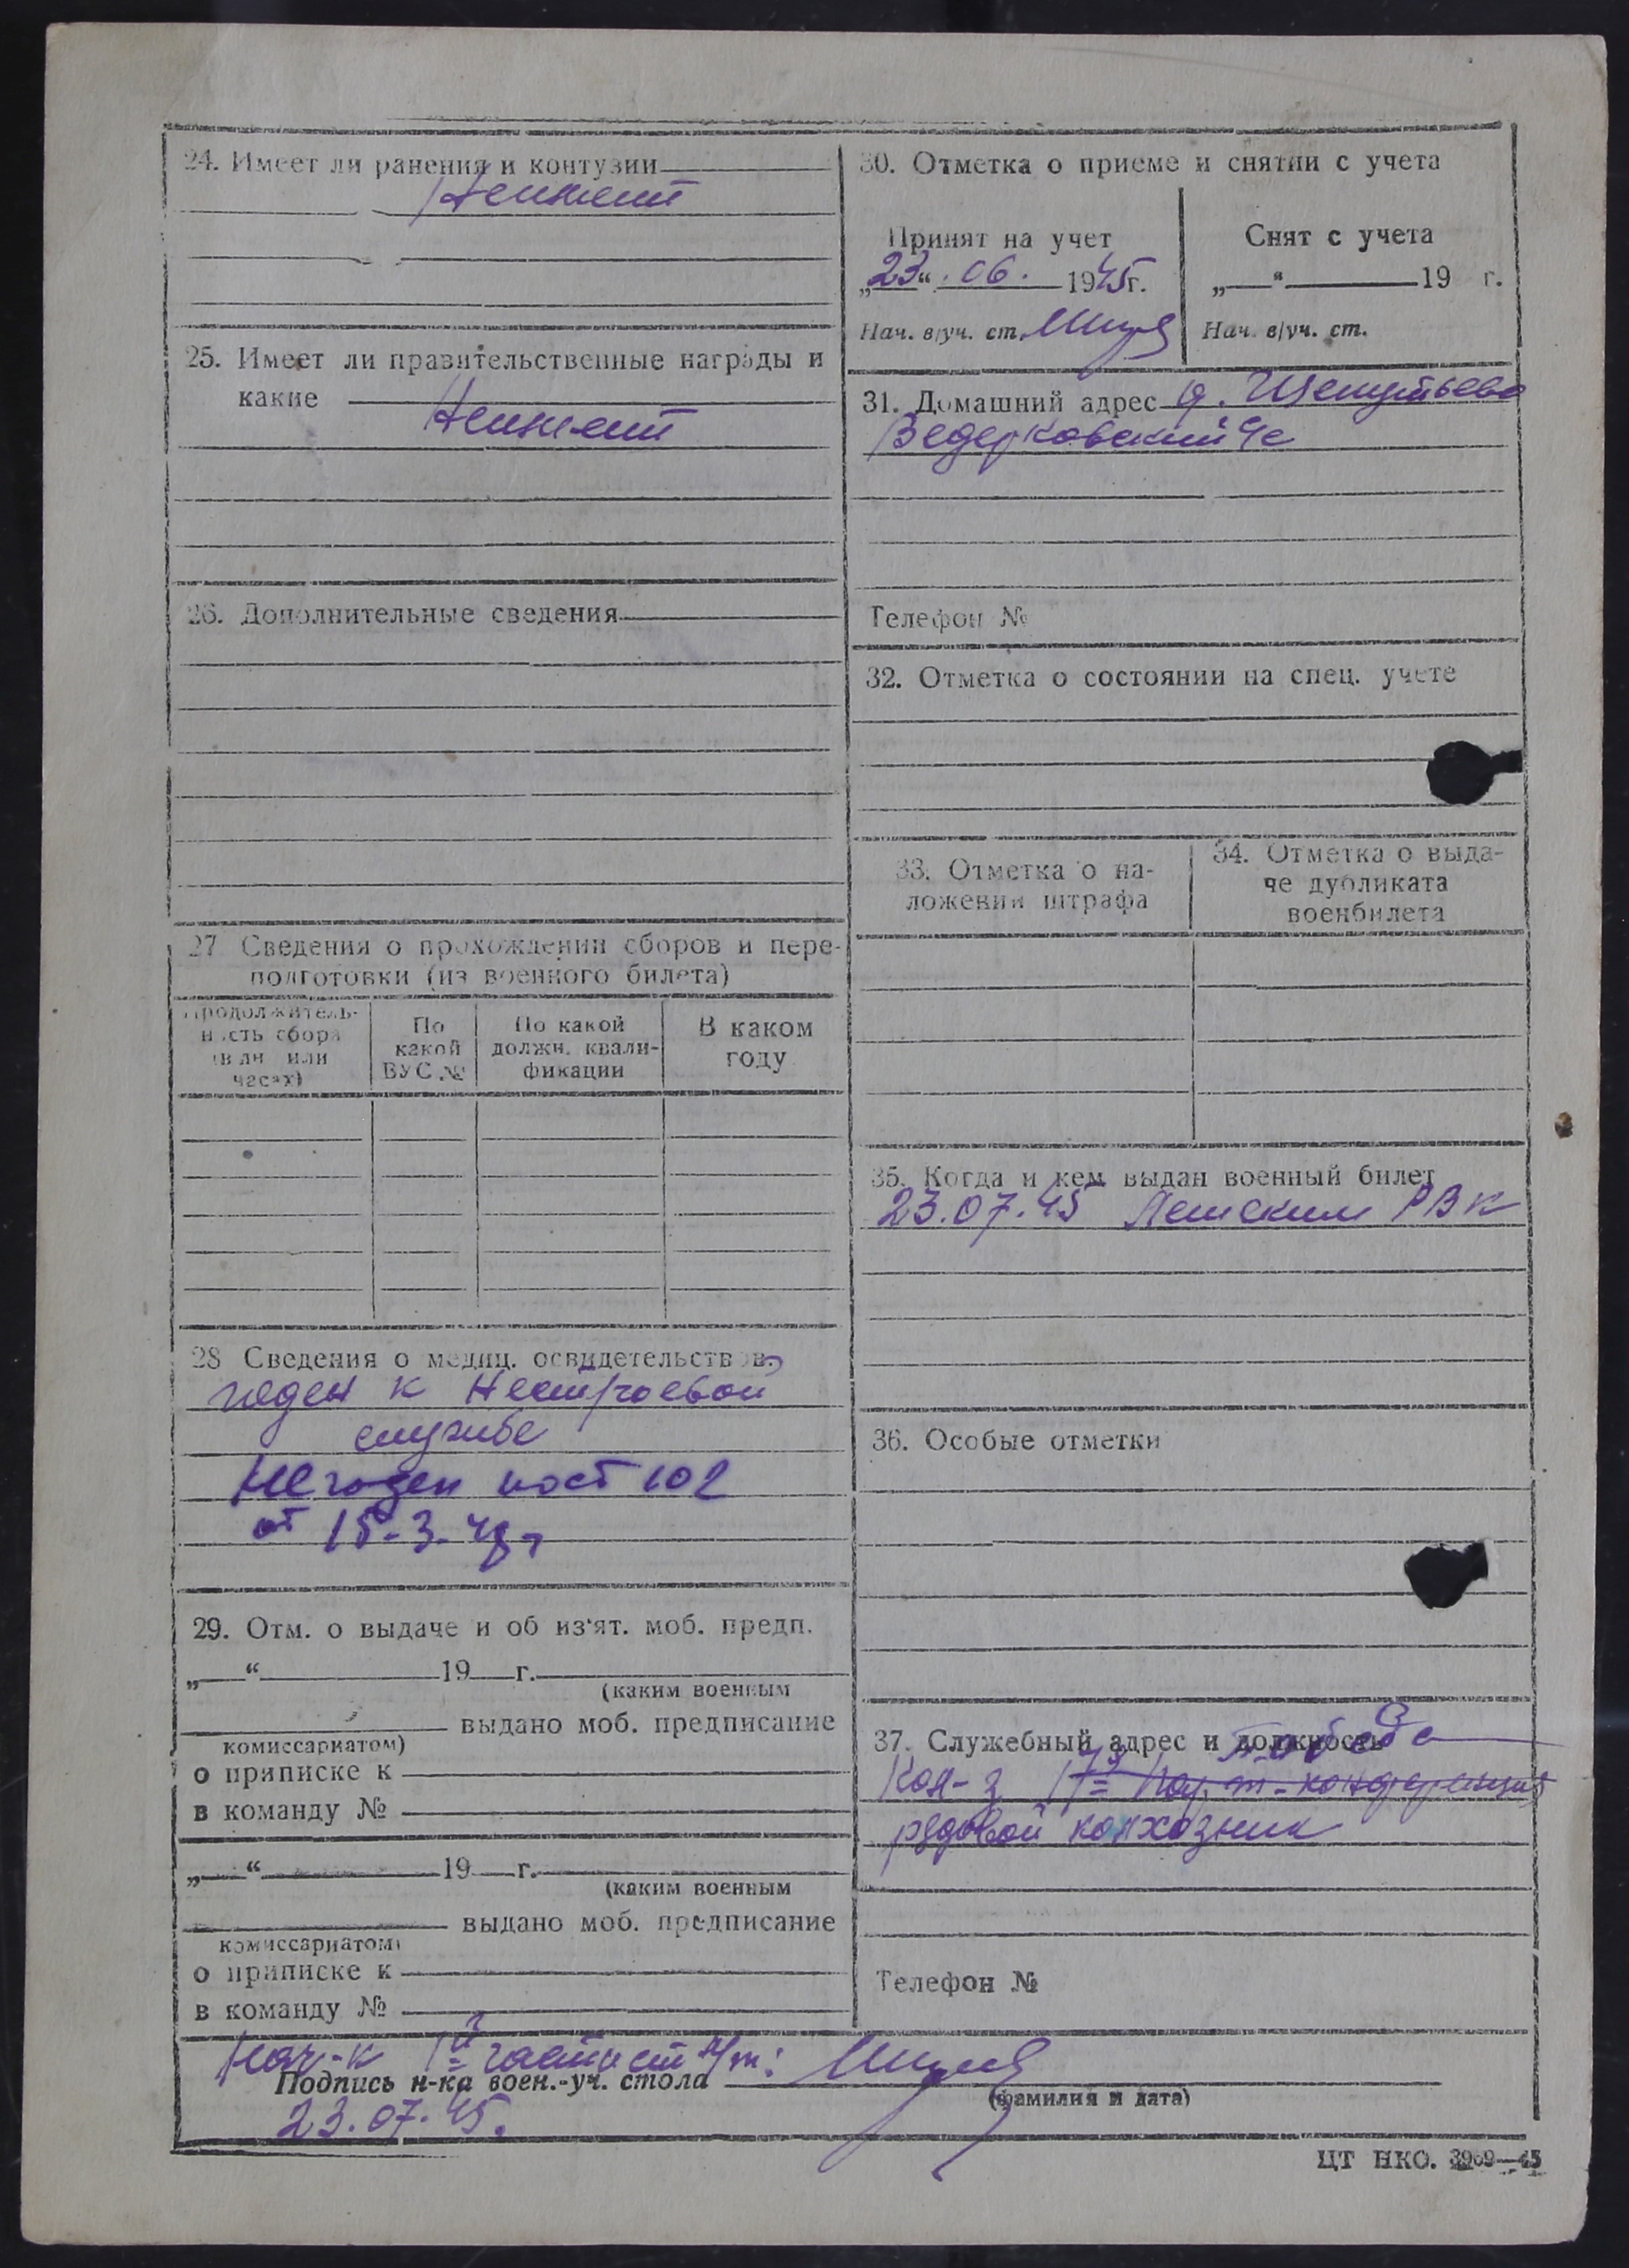 24. Имеет ли ранения и контузии
Неимеет
25. Имеет ли правительственные награды и
какие
Неимеет
26. Дополнительные сведения
27 Сведения о прохождении сборов и пере-
подготовки (из военного билета)
Продолжитель-
ность сбора
(в дн. или
часах)
По
какой
ВУС №
По какой
должн. квали-
фикации
В каком
году
28 Сведения о медиц. освидетельствов.
годен к Нестроевой
службе
Негоден пост 102
от 15-3-48 г
29. Отм. о выдаче и об из'ят. моб. предп.
„ “ 19 г.
(каким военным
выдано моб. предписание
комиссариатом)
о приписке к
в команду №
„ “ 19 г.
(каким военным
выдано моб. предписание
комиссариатом)
о приписке к
в команду №
30. Отметка о приеме и снятии с учета
Принят на учет
„23“. 06. 1945г.
Нач. в/уч. ст.
Снят с учета
„ “ 19 г.
Нач. в/уч. ст.
31. Домашний адрес д. Шепутьево
Ведерковский с
Телефон №
32. Отметка о состоянии на спец. учете
33. Отметка о на-
ложении штрафа
34. Отметка о выда-
че дубликата
военбилета
35. Когда и кем выдан военный билет
23.07.45 Лешским РВК
36. Особые отметки
37. Служебный адрес и должность
Победа
Кол-з 17 парт-конференция
рядовой колхозник
Телефон №
Нач-к 1й части ст л/т:
Подпись н-ка воен.-уч. стола
(фамилия и дата)
23.07.45.
ЦТ НКО. 3969—45